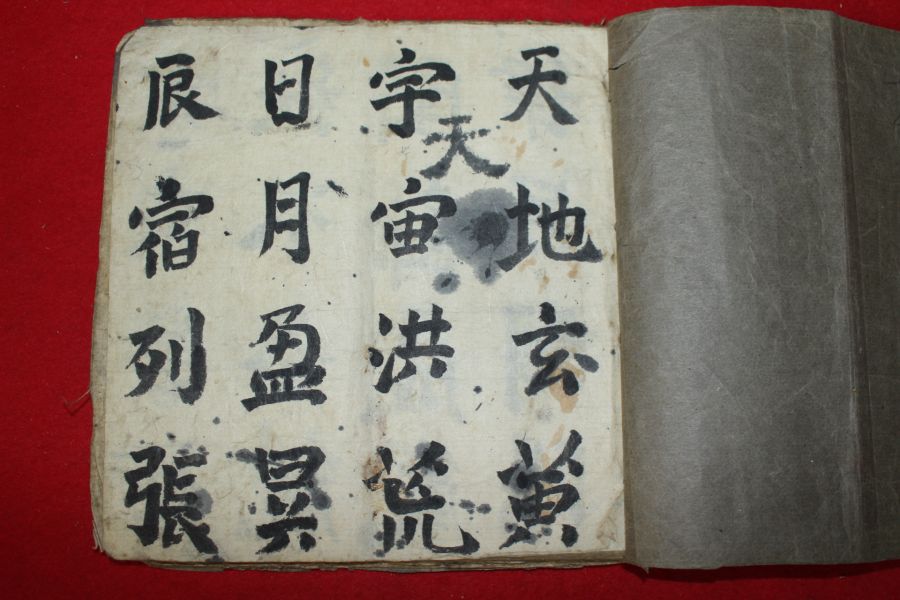 天地玄黄
天
宇宙洪荒
日月盈昃
辰宿列張